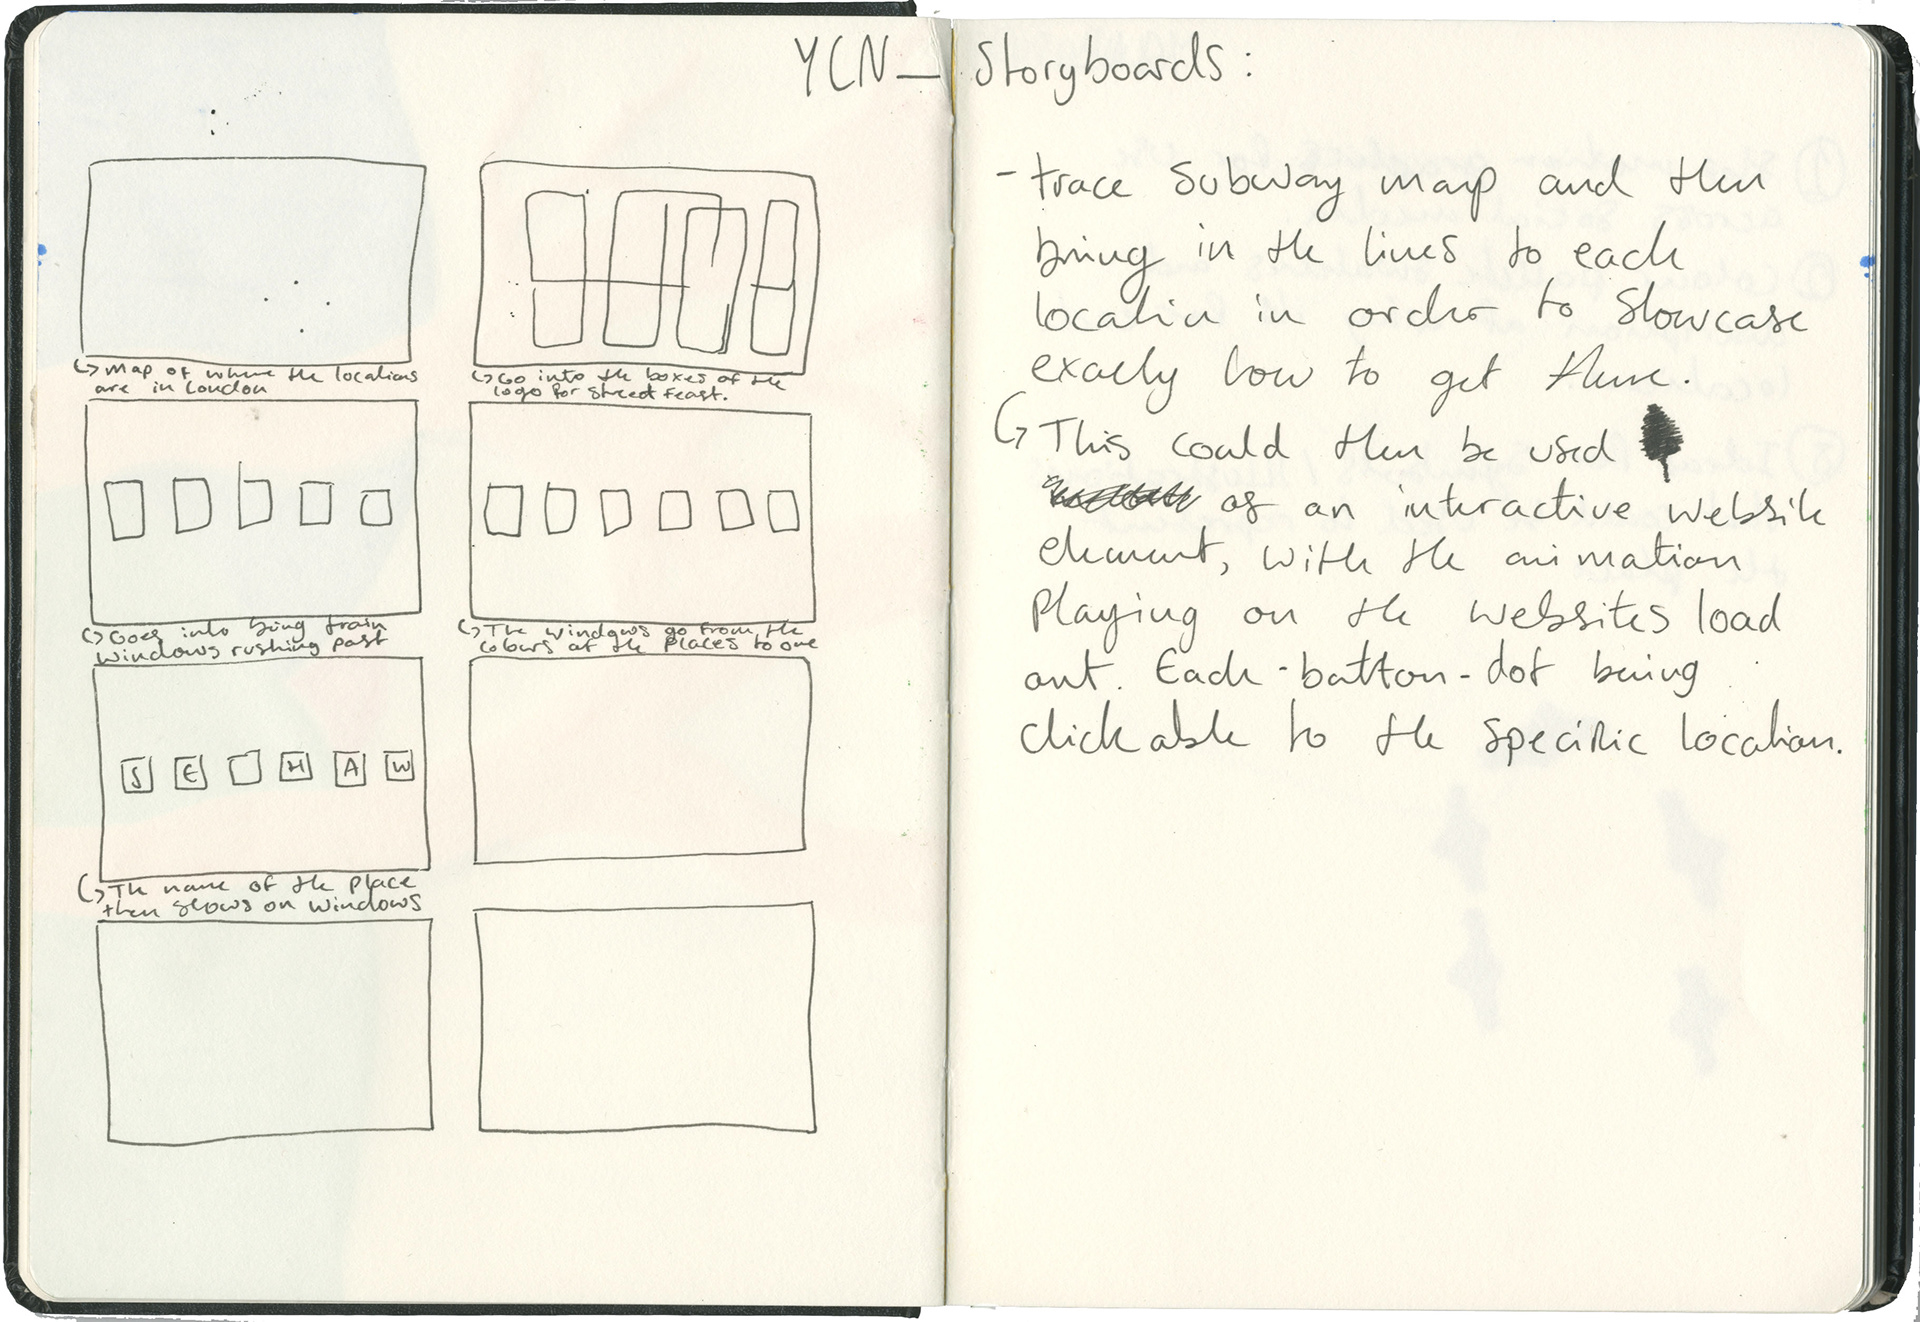 YCN_ Storyboards:
↳ Map of where the locations
are in London
↳ Go into the boxes of the
logo for Street Feast.
↳ Goes into being train
windows rushing past
↳ The windows go from the
colours of the places to one
S E H A W
↳ The name of the place
then shows on windows
- trace subway map and then
bring in the lines to each
location in order to showcase
exacly how to get there.
↳ This could then be used
as an interactive website
element, with the animation
Playing on the websites load
out. Each-button-dot being
clickable to the specific location.